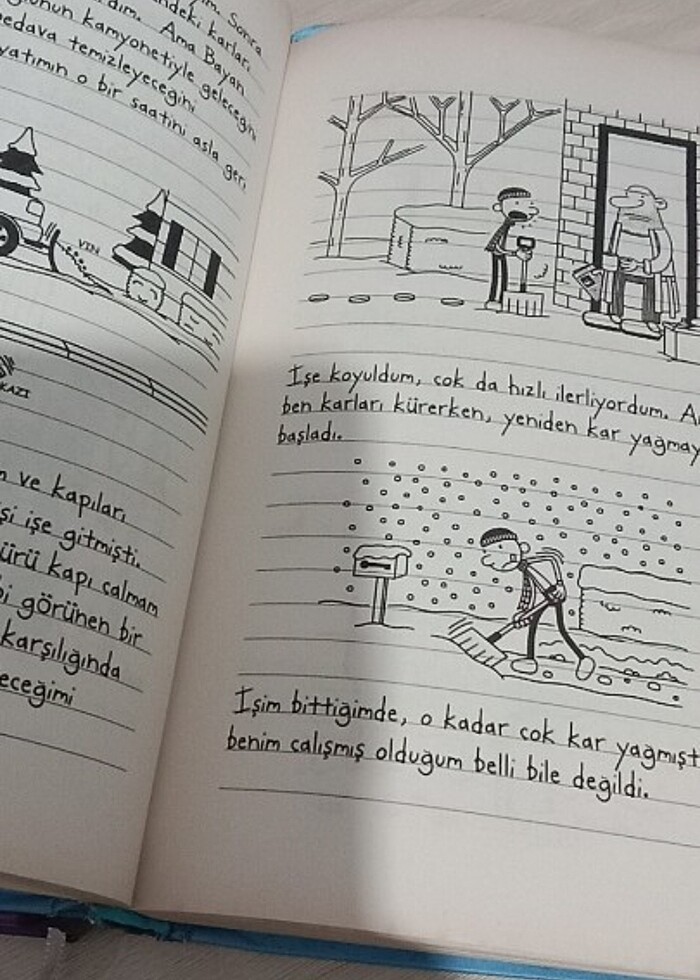 Sonra
ndeki karları
dım. Ama Bayan
kamyonetiyle geleceğini
bedava temizleyeceğini
o bir saatini asla geri
VIN
KAZI
ve kapıları
işe gitmişti.
kapı çalmam
görünen bir
karşılığında
İşe koyuldum, cok da hızlı ilerliyordum.
ben karları kürerken, yeniden kar yağmay
başladı.
İşim bittiğimde, o kadar cok kar yağmışt
benim calışmış olduğum belli bile değildi.